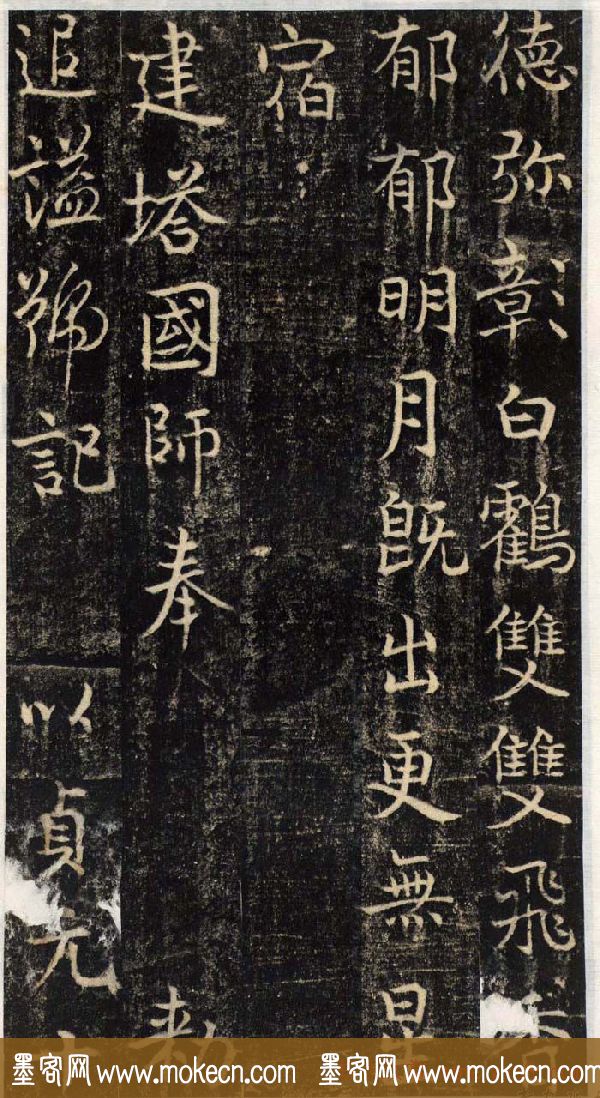 德弥彰白鸖雙雙飛
郁郁明月旣出更無星
宿
建塔國師奉 勅
追謚號記 以貞元
墨客网 www.mokecn.com 墨客网 www.mokecn.com